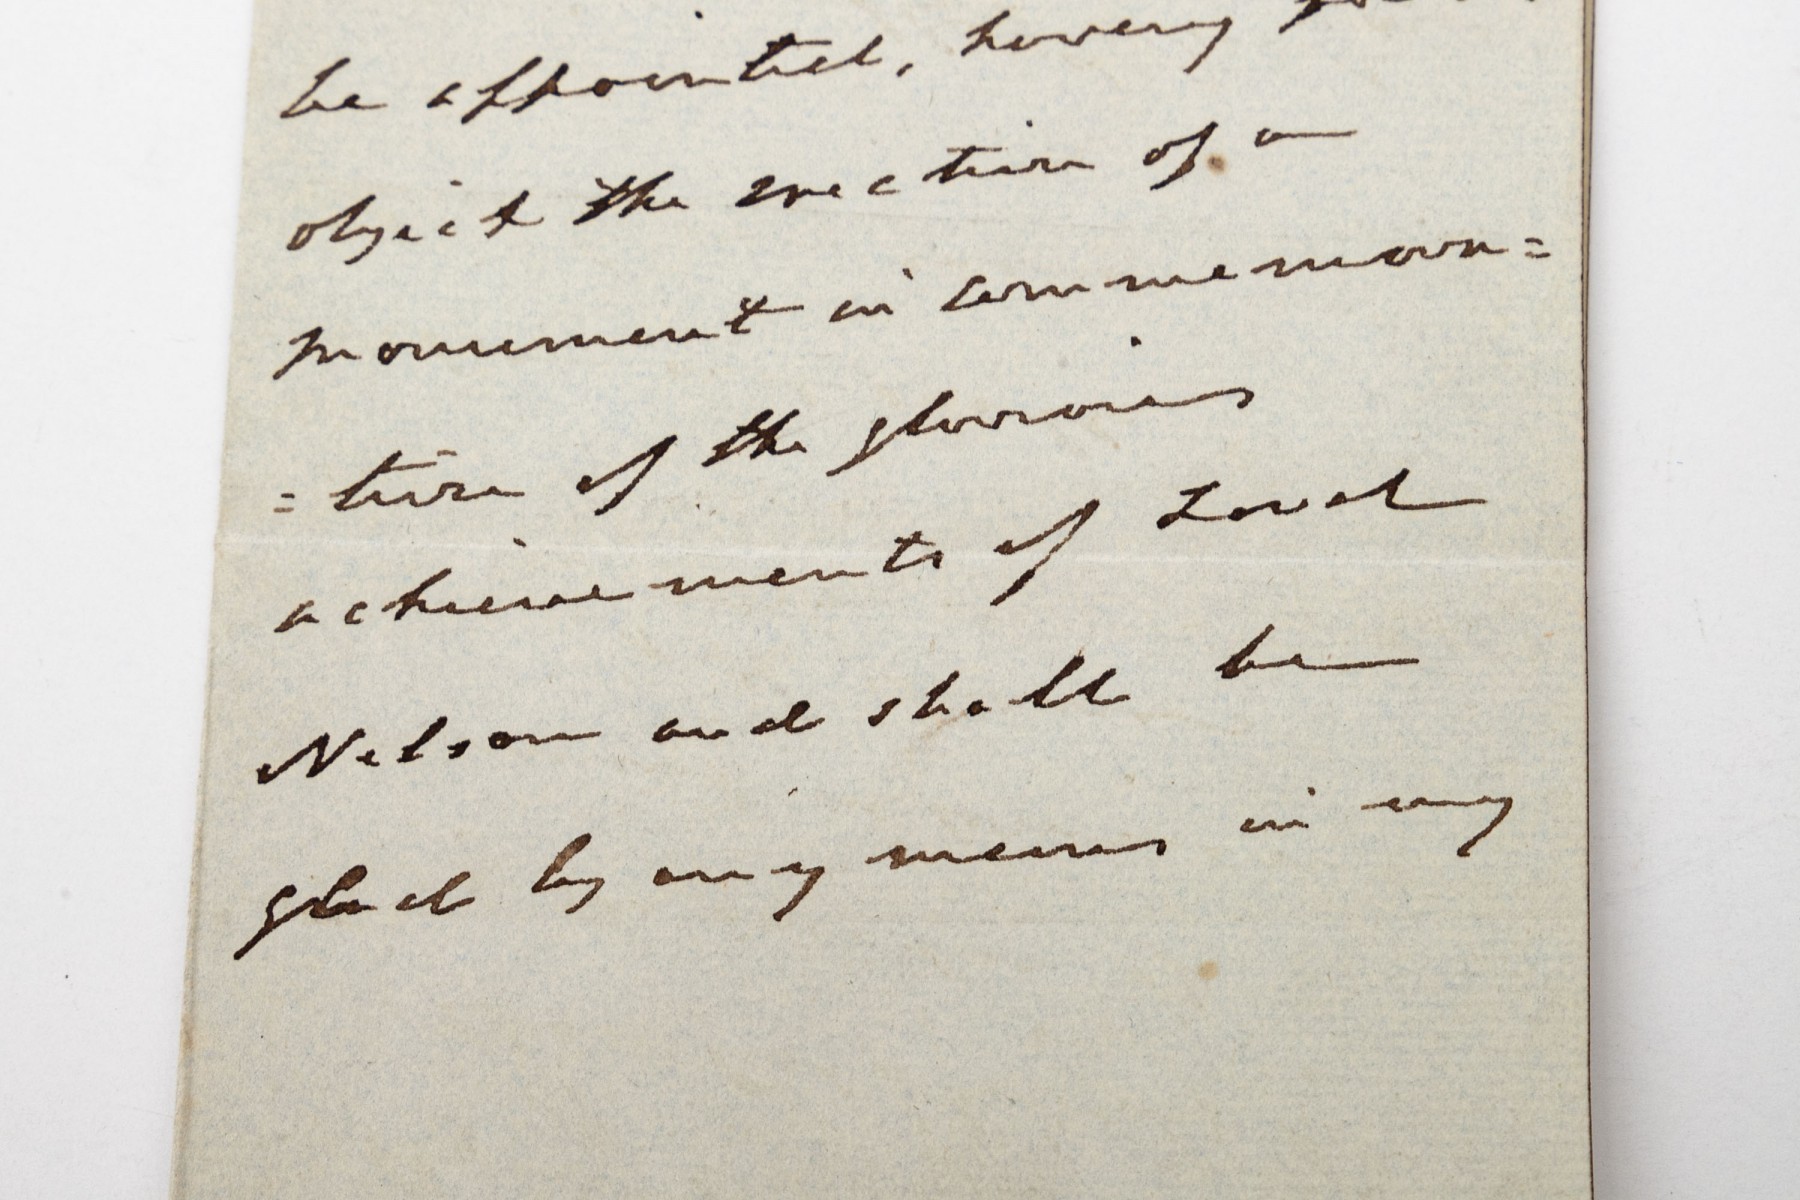 be appointed, having for
object the erection of a
monument in commemora=
=tion of the glorious
achievements of Lord
Nelson and shall be
glad by any means in my